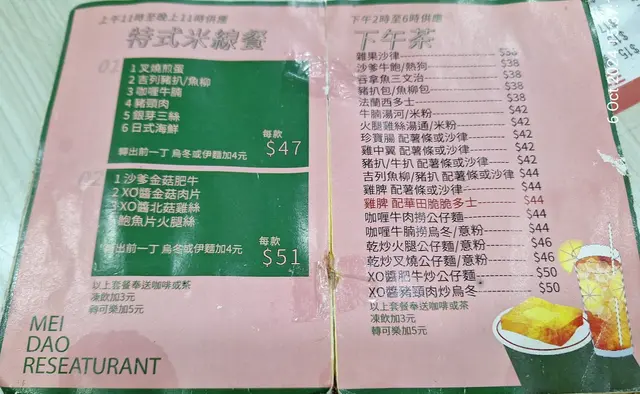 上午11時至晚上11時供應
特式米線餐
01
1叉燒煎蛋
2吉列豬扒/魚柳
3咖喱牛腩
4豬頸肉
5銀芽三絲
6日式海鮮
每款
$47
轉出前一丁 烏冬或伊麵加4元
1沙爹金菇肥牛
2XO醬金菇肉片
3XO醬北菇雞絲
鮑魚片火腿絲
每款
$51
轉出前一丁 烏冬或伊麵加4元
以上套餐奉送咖啡或茶
凍飲加3元
轉可樂加5元
MEI
DAO
RESEATURANT
下午2時至6時供應
下午茶
雜果沙律 $38
沙爹牛飽/熱狗 $38
吞拿魚三文治 $38
豬扒包/魚柳包 $38
法蘭西多士 $38
牛腩湯河/米粉 $42
火腿雞絲湯通/米粉 $42
珍寶腸 配薯條或沙律 $42
雞中翼 配薯條或沙律 $42
豬扒/牛扒 配薯條或沙律 $42
吉列魚柳/豬扒 配薯條或沙律 $44
雞脾 配薯條或沙律 $44
雞脾 配華田脆脆多士 $44
咖喱牛肉撈公仔麵 $44
咖喱牛腩撈烏冬/意粉 $44
乾炒火腿公仔麵/意粉 $46
乾炒叉燒公仔麵/意粉 $46
XO醬肥牛炒公仔麵 $50
XO醬豬頸肉炒烏冬 $50
以上套餐奉送咖啡或茶
凍飲加3元
轉可樂加5元
$15